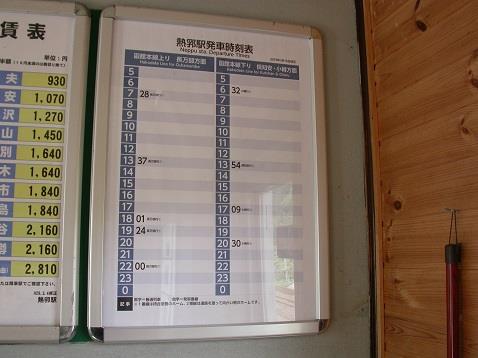 賃表
単位：円
夫 930
安 1,070
沢 1,270
山 1,450
別 1,640
木 1,640
市 1,840
島 1,840
谷 2,160
樽 2,160
2,810
熱郛駅
熱郛駅発車時刻表
Neppu sta. Departure Times
函館本線上り 長万部方面
Hakodate Line for Oshamambe
5
6
7 28
8
9
10
11
12
13 37
14
15
16
17
18 01
19 24
20
21
22 00
23
0
函館本線下り 倶知安・小樽方面
Hakodate Line for Kutchan & Otaru
5
6 32
7
8
9
10
11
12
13 54
14
15
16
17 09
18
19
20 30
21
22
23
0
記事